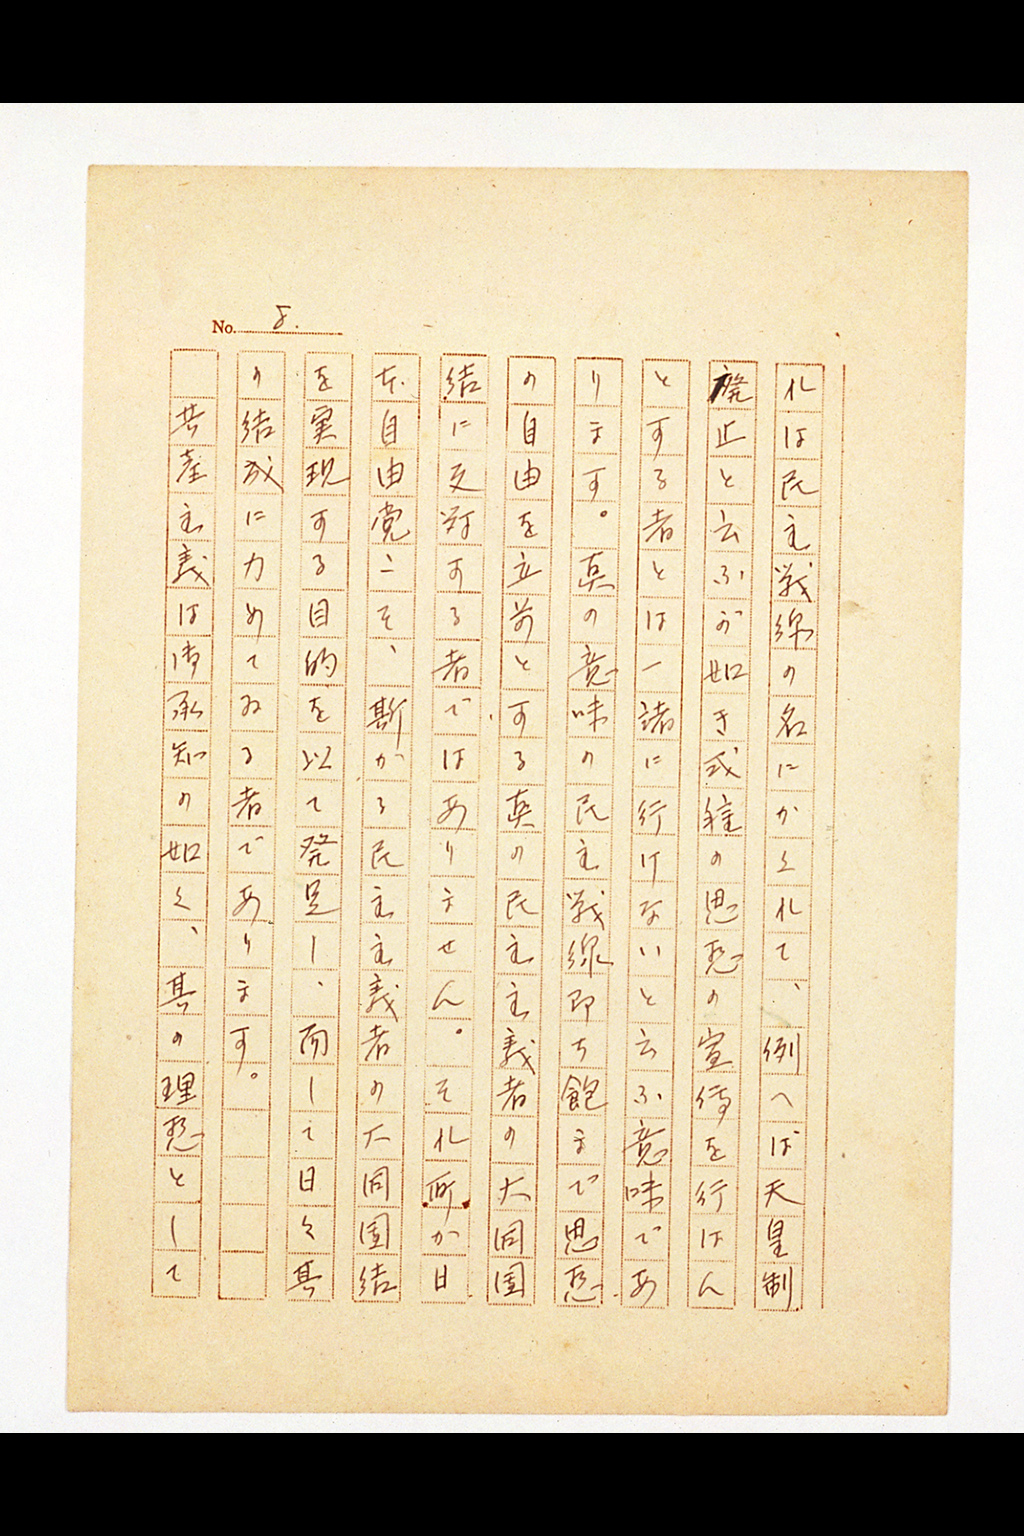 No. 8.
れは民主戦線の名にかくれて、例へば天皇制
廃止と云ふが如き或種の思想の宣伝を行はん
とする者とは一諸に行けないと云ふ意味であ
ります。真の意味の民主戦線即ち飽まで思想
の自由を立前とする真の民主主義者の大同団
結に反対する者ではありません。それ所か日
本自由党こそ、斯かる民主主義者の大同団結
を実現する目的を以て発足し、而して日々其
の結成に力めてゐる者であります。
共産主義は御承知の如く、其の理想として